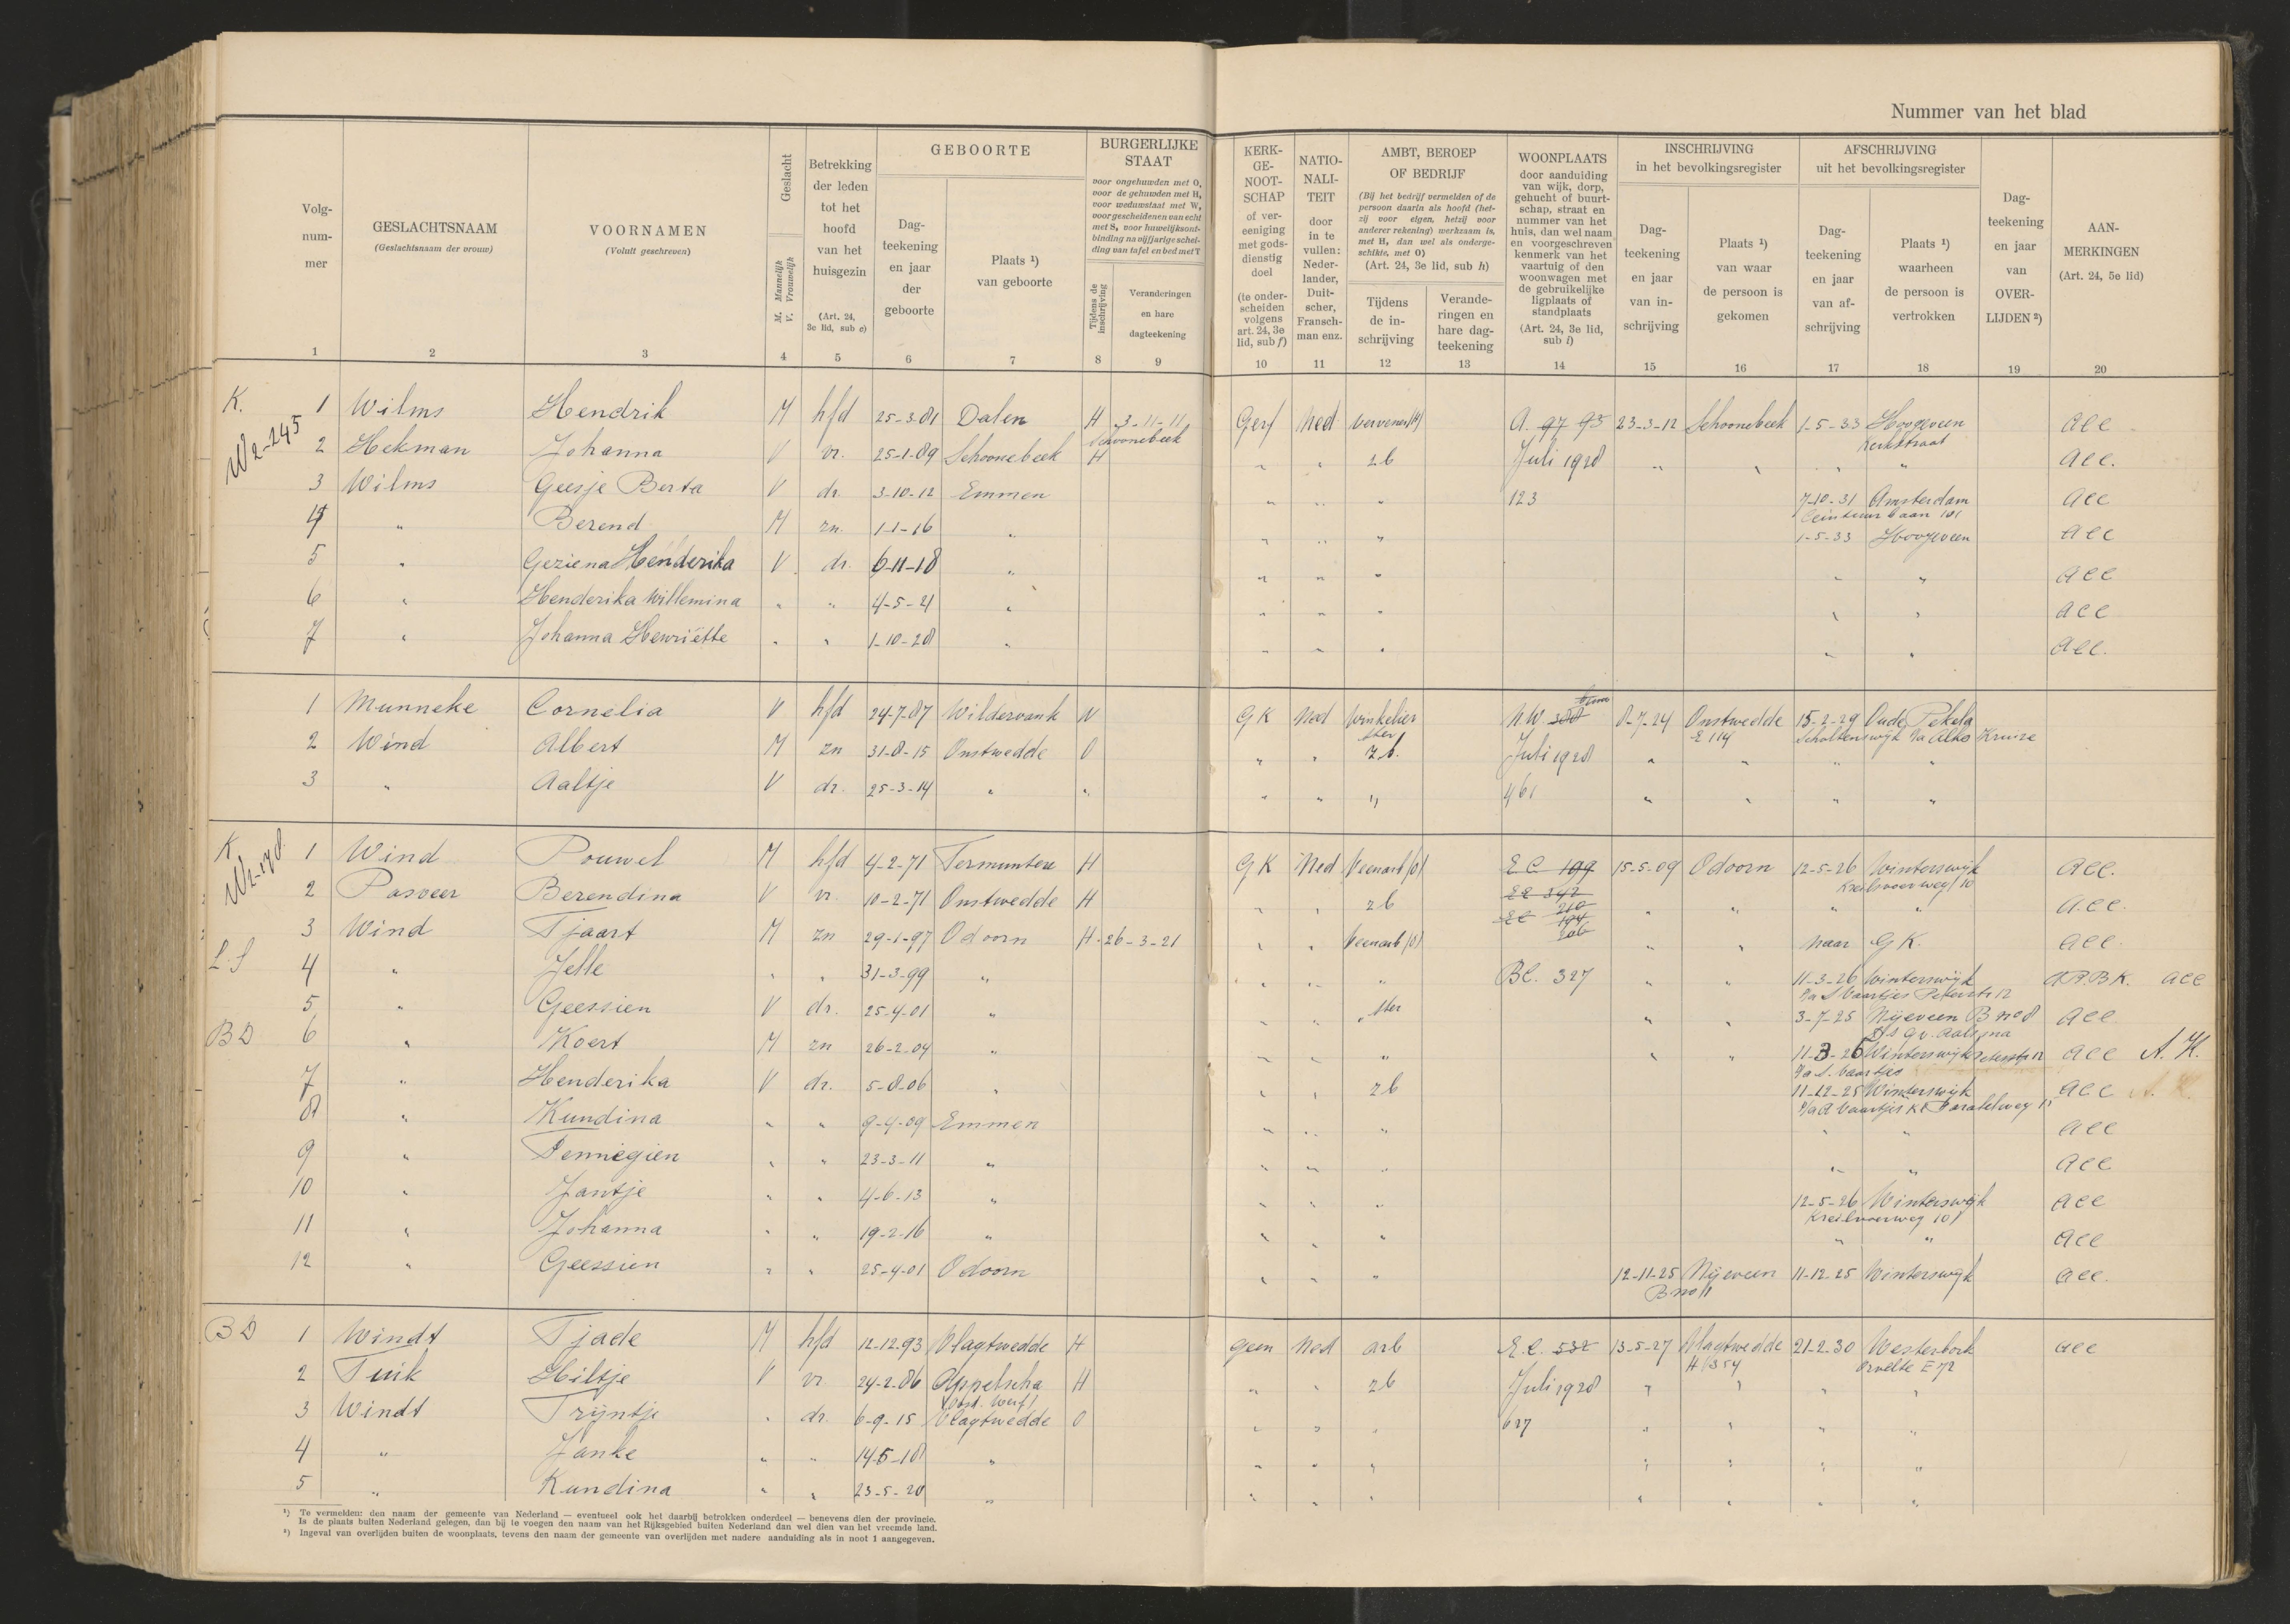 Nummer van het blad
Volgnummer
GESLACHTSNAAM
(Geslachtsnaam der vrouw)
VOORNAMEN
(Voluit geschreven)
Geslacht
M. Mannelijk
V. Vrouwelijk
Betrekking der leden tot het hoofd van het huisgezin
(Art. 24, 3e lid, sub c)
GEBOORTE
Dagteekening en jaar der geboorte
Plaats ¹) van geboorte
BURGERLIJKE STAAT
voor ongehuwden met O, voor de gehuwden met H, voor weduwstaat met W, voor gescheidenen van echt met S, voor huwelijksontbinding na vijfjarige scheiding van tafel en bed met T
Tijdens de inschrijving
Veranderingen en hare dagteekening
KERKGENOOTSCHAP of vereeniging met godsdienstig doel
(te onderscheiden volgens art. 24, 3e lid, sub f)
NATIONALITEIT
door in te vullen: Nederlander, Duitscher, Franschman enz.
AMBT, BEROEP OF BEDRIJF
(Bij het bedrijf vermelden of de persoon daarin als hoofd (hetzij voor eigen, hetzij voor anderer rekening) werkzaam is, met H, dan wel als ondergeschikte, met O)
(Art. 24, 3e lid, sub h)
Tijdens de inschrijving
Veranderingen en hare dagteekening
WOONPLAATS
door aanduiding van wijk, dorp, gehucht of buurtschap, straat en nummer van het huis, dan wel naam en voorgeschreven kenmerk van het vaartuig of den woonwagen met de gebruikelijke ligplaats of standplaats
(Art. 24, 3e lid, sub i)
INSCHRIJVING in het bevolkingsregister
Dagteekening en jaar van inschrijving
Plaats ¹) van waar de persoon is gekomen
AFSCHRIJVING uit het bevolkingsregister
Dagteekening en jaar van afschrijving
Plaats ¹) waarheen de persoon is vertrokken
Dagteekening en jaar van OVERLIJDEN ²)
AANMERKINGEN
(Art. 24, 5e lid)
1 2 3 4 5 6 7 8 9 10 11 12 13 14 15 16 17 18 19 20
K. 1 Wilms Hendrik M hfd 25-3-81 Dalen H 3-11-11 Schoonebeek Gerf Ned vervener (H) A. 97 93 23-3-12 Schoonebeek 1-5-33 Hoogeveen Kerkstraat acc
W2-245
2 Hekman Johanna V vr. 25-1-89 Schoonebeek H " " zb Juli 1928 " " " " acc.
3 Wilms Geesje Berta V dr. 3-10-12 Emmen " " " 123 7-10-31 Amsterdam Ceintuurbaan 101 acc
4 " Berend M zn. 1-1-16 " " " " 1-5-33 Hoogeveen acc
5 " Geziena Henderika V dr. 6-11-18 " " " " " " acc
6 " Henderika Willemina " " 4-5-21 " " " " " " acc
7 " Johanna Henriëtte " " 1-10-28 " " " " " " acc.
1 Munneke Cornelia V hfd 24-7-87 Wildervank W G K Ned winkelierster N.W. 388 8-7-24 Onstwedde E 114 15-2-29 Oude Pekela Scholtenswijk p/a Alko Kruize
2 Wind Albert M zn 31-8-15 Onstwedde O " " z.b. Juli 1928 " " " "
3 " Aaltje V dr. 25-3-14 " " " " " 461 " " " "
K 1 Wind Pouwel M hfd 4-2-71 Termunten H G K Ned Veenarb (o) E.C. 199 15-5-09 Odoorn 12-5-26 Winterswijk acc.
W2-178
2 Pasveer Berendina V vr. 10-2-71 Onstwedde H " " zb EC 342 " " " " acc.
3 Wind Tjaart M zn 29-1-97 Odoorn H. 26-3-21 " " Veenarb (o) EC 210 194 206 " " naar G K. acc.
L.S 4 " Jelle " " 31-3-99 " " " " BC. 327 " " 11-3-26 Winterswijk p/a S Vaartjes Peterstr 12 ARBK. acc
5 " Geessien V dr. 25-4-01 " " " "ster " " 3-7-25 Nijeveen B no 8 acc
BD 6 " Koert M zn 26-2-04 " " " " " " 11-3-26 Winterswijk Peterstr 12 p/a S. Vaartjes acc A.K.
7 " Henderika V dr. 5-8-06 " " " zb 11-12-25 Winterswijk acc A.K.
8 " Kundina " " 9-4-09 Emmen " " " " " acc
9 " Fennegien " " 23-3-11 " " " " " " acc
10 " Jantje " " 4-6-13 " " " " 12-5-26 Winterswijk acc
11 " Johanna " " 19-2-16 " " " " " " acc
12 " Geessien " " 25-4-01 Odoorn " " " 12-11-25 Nijeveen B no 11 11-12-25 Winterswijk acc.
BD 1 Windt Tjade M hfd 12-12-93 Vlagtwedde H geen Ned arb E.C. 532 13-5-27 Vlagtwedde H 354 21-2-30 Westerbork Orvelte E 72 acc
2 Tuik Hiltje V vr. 24-2-86 Appelscha H " " zb Juli 1928 " " " "
3 Windt Trijntje " dr. 6-9-15 Vlagtwedde O " " " 627 " " " "
4 " Janke " " 14-5-18 " " " " " " " "
5 " Kundina " " 23-5-20 " " " " " " " "
¹) Te vermelden: den naam der gemeente van Nederland — eventueel ook het daarbij betrokken onderdeel — benevens dien der provincie.
Is de plaats buiten Nederland gelegen, dan bij te voegen den naam van het Rijksgebied buiten Nederland dan wel dien van het vreemde land.
²) Ingeval van overlijden buiten de woonplaats, tevens den naam der gemeente van overlijden met nadere aanduiding als in noot 1 aangegeven.